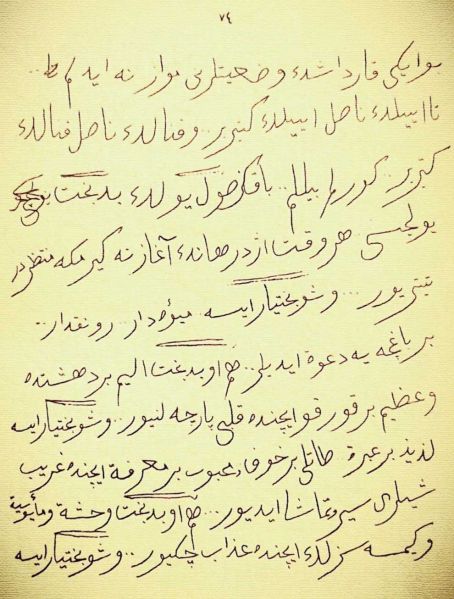 ٧٤
بو ایکی قارداشڭ وضعیتلرینی موازنه ایده‌لم..
تا اییلك ناصل اییلك کتیریر.. وفنالق ناصل فنالق
کتیریر.. کوره‌لم بیله‌لم.. باق صول یولڭ بدبخت
یولجسی هر وقت اژدرهانڭ آغزینه کیرمکه منتظردر
تیتریور.. وشو بختیار ایسه میوه‌دار.. رونقدار..
بر باغچه یه دعوة ایدیلیر.. هم او بدبخت الیم بر دهشتده
وعظیم بر قورقو ایچنده قلبی پارچه لنیور.. وشو بختیار ایسه
لذیذ بر عبرة طاتلی بر خوف محبوب بر معرفة ایچنده غریب
شیلری سیر وتماشا ایدیور.. هم او بدبخت وحشة ومأیوسیة
وکیمسه سزلك ایچنده عذاب چکیور.. وشو بختیار ایسه